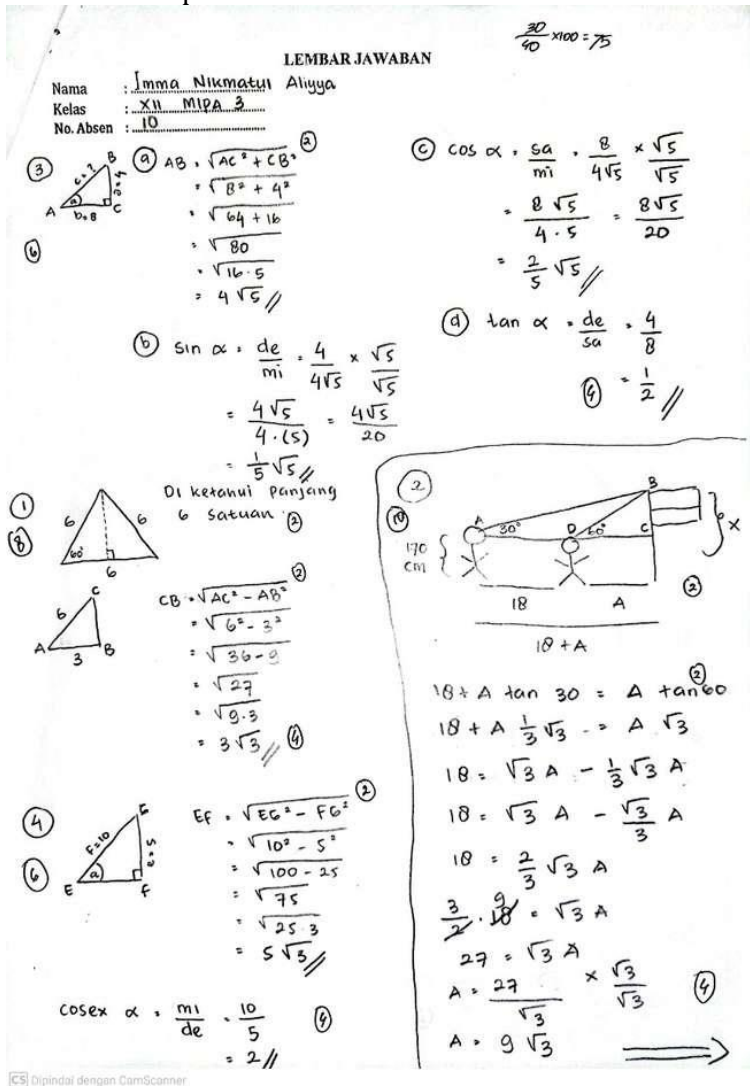 30/40 x100 = 75
LEMBAR JAWABAN
Nama : Imma Nikmatul Aliyya
Kelas : XII MIPA 3
No. Absen : 10
③ ⑥
B
c = ?
a = 4
A a
b = 8 C
ⓐ AB = √AC² + CB² ②
= √8² + 4²
= √64 + 16
= √80
= √16 · 5
= 4√5 //
ⓑ sin α = de/mi = 4/4√5 x √5/√5
= 4√5/4 · (5) = 4√5/20
= 1/5 √5 //
ⓒ cos α = sa/mi = 8/4√5 x √5/√5
= 8√5/4 · 5 = 8√5/20
= 2/5 √5 //
ⓓ tan α = de/sa = 4/8
④ = 1/2 //
① ⑧
6 6
60°
6
Di ketahui panjang
6 satuan ②
C
6
A 3 B
CB = √AC² - AB² ②
= √6² - 3²
= √36 - 9
= √27
= √9.3
= 3√3 // ④
④ ⑥
G
f=10
e = 5
E a F
EF = √EG² - FG² ②
= √10² - 5²
= √100 - 25
= √75
= √25.3
= 5√3 //
cosex α = mi/de = 10/5 ④
= 2 //
②
⑩
B
A 30° D 60° C
x
170
cm
18 A ②
18 + A
18 + A tan 30 = A tan 60 ②
18 + A 1/3 √3 = A √3
18 = √3 A - 1/3 √3 A
18 = √3 A - √3/3 A
18 = 2/3 √3 A
3/2 · 18 9 = √3 A
27 = √3 A
A = 27/√3 x √3/√3 ④
A = 9√3
CS Dipindai dengan CamScanner